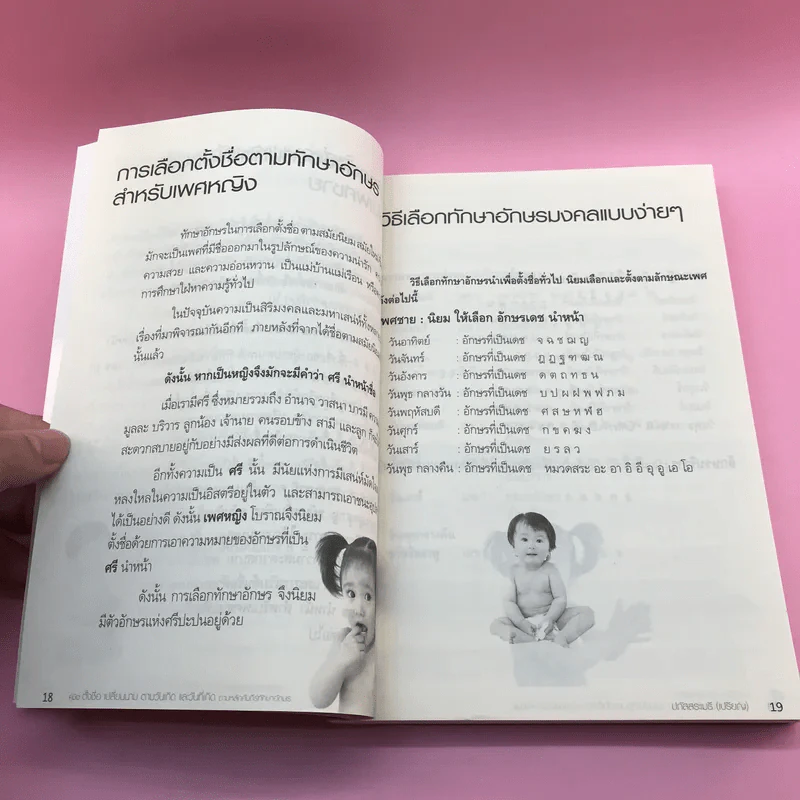 การเลือกตั้งชื่อตามทักษาอักษร
สำหรับเพศหญิง
ทักษาอักษรในการเลือกตั้งชื่อ ตามสมัยนิยม
มักจะเป็นเพศที่มีชื่อออกมาในรูปลักษณ์ของความน่ารัก
ความสวย และความอ่อนหวาน เป็นแม่บ้านแม่เรือน
การศึกษาใฝ่หาความรู้ทั่วไป
ในปัจจุบันความเป็นสิริมงคลและมหาเสน่ห์
เรื่องที่มาพิจารณากันอีกที ภายหลังที่จากได้ชื่อตามสมัย
นั้นแล้ว
ดังนั้น หากเป็นหญิงจึงมักจะมีคำว่า ศรี นำหน้าชื่อ
เมื่อเรามีศรี ซึ่งหมายรวมถึง อำนาจ วาสนา บารมี
มูลละ บริวาร ลูกน้อง เจ้านาย คนรอบข้าง สามี และลูก
สะดวกสบายอยู่กับอย่างมีส่งผลที่ดีต่อการดำเนินชีวิต
อีกทั้งความเป็น ศรี นั้น มีนัยแห่งการมีเสน่ห์
หลงใหลในความเป็นอิสตรีอยู่ในตัว และสามารถเอาชนะ
ได้เป็นอย่างดี ดังนั้น เพศหญิง โบราณจึงนิยม
ตั้งชื่อด้วยการเอาความหมายของอักษรที่เป็น
ศรี นำหน้า
ดังนั้น การเลือกทักษาอักษร จึงนิยม
มีตัวอักษรแห่งศรีปะปนอยู่ด้วย
18 ตั้งชื่อ เปลี่ยนนาม ตามวันเกิด และวันที่เกิด
วิธีเลือกทักษาอักษรมงคลแบบง่ายๆ
วิธีเลือกทักษาอักษรนำเพื่อตั้งชื่อทั่วไป นิยมเลือกและตั้งตามลักษณะเพศ
ดังต่อไปนี้
เพศชาย : นิยม ให้เลือก อักษรเดช นำหน้า
วันอาทิตย์ : อักษรที่เป็นเดช จ ฉ ช ฌ ญ
วันจันทร์ : อักษรที่เป็นเดช ฎ ฏ ฐ ฑ ฒ ณ
วันอังคาร : อักษรที่เป็นเดช ด ต ถ ท ธ น
วันพุธ กลางวัน : อักษรที่เป็นเดช บ ป ผ ฝ พ ฟ ภ ม
วันพฤหัสบดี : อักษรที่เป็นเดช ศ ส ษ ห ฬ ฮ
วันศุกร์ : อักษรที่เป็นเดช ก ข ค ฆ ง
วันเสาร์ : อักษรที่เป็นเดช ย ร ล ว
วันพุธ กลางคืน : อักษรที่เป็นเดช หมวดสระ อะ อา อิ อี อุ อู เอ โอ
19